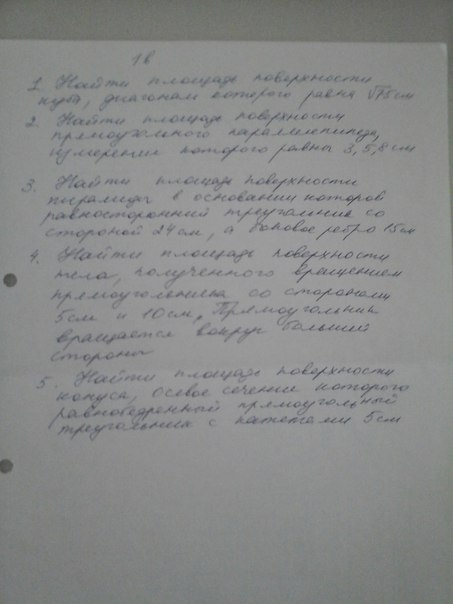 1в
1. Найти площадь поверхности
куба, диагонам которого равна √75 см
2. Найти площадь поверхности
прямоугольного параллепипеда,
измерение которого равны 3, 5, 8 см
3. Найти площадь поверхности
пирамиды в основании которой
равносторонний треугольник со
стороной 24 см, а боковое ребро 15 см
4. Найти площадь поверхности
тела, полученного вращением
прямоугольника со сторонами
5 см и 10 см, Прямоугольник
вращается вокруг большей
стороны
5. Найти площадь поверхности
конуса, осевое сечение которого
равнобедренный прямоугольный
треугольник с катетами 5 см